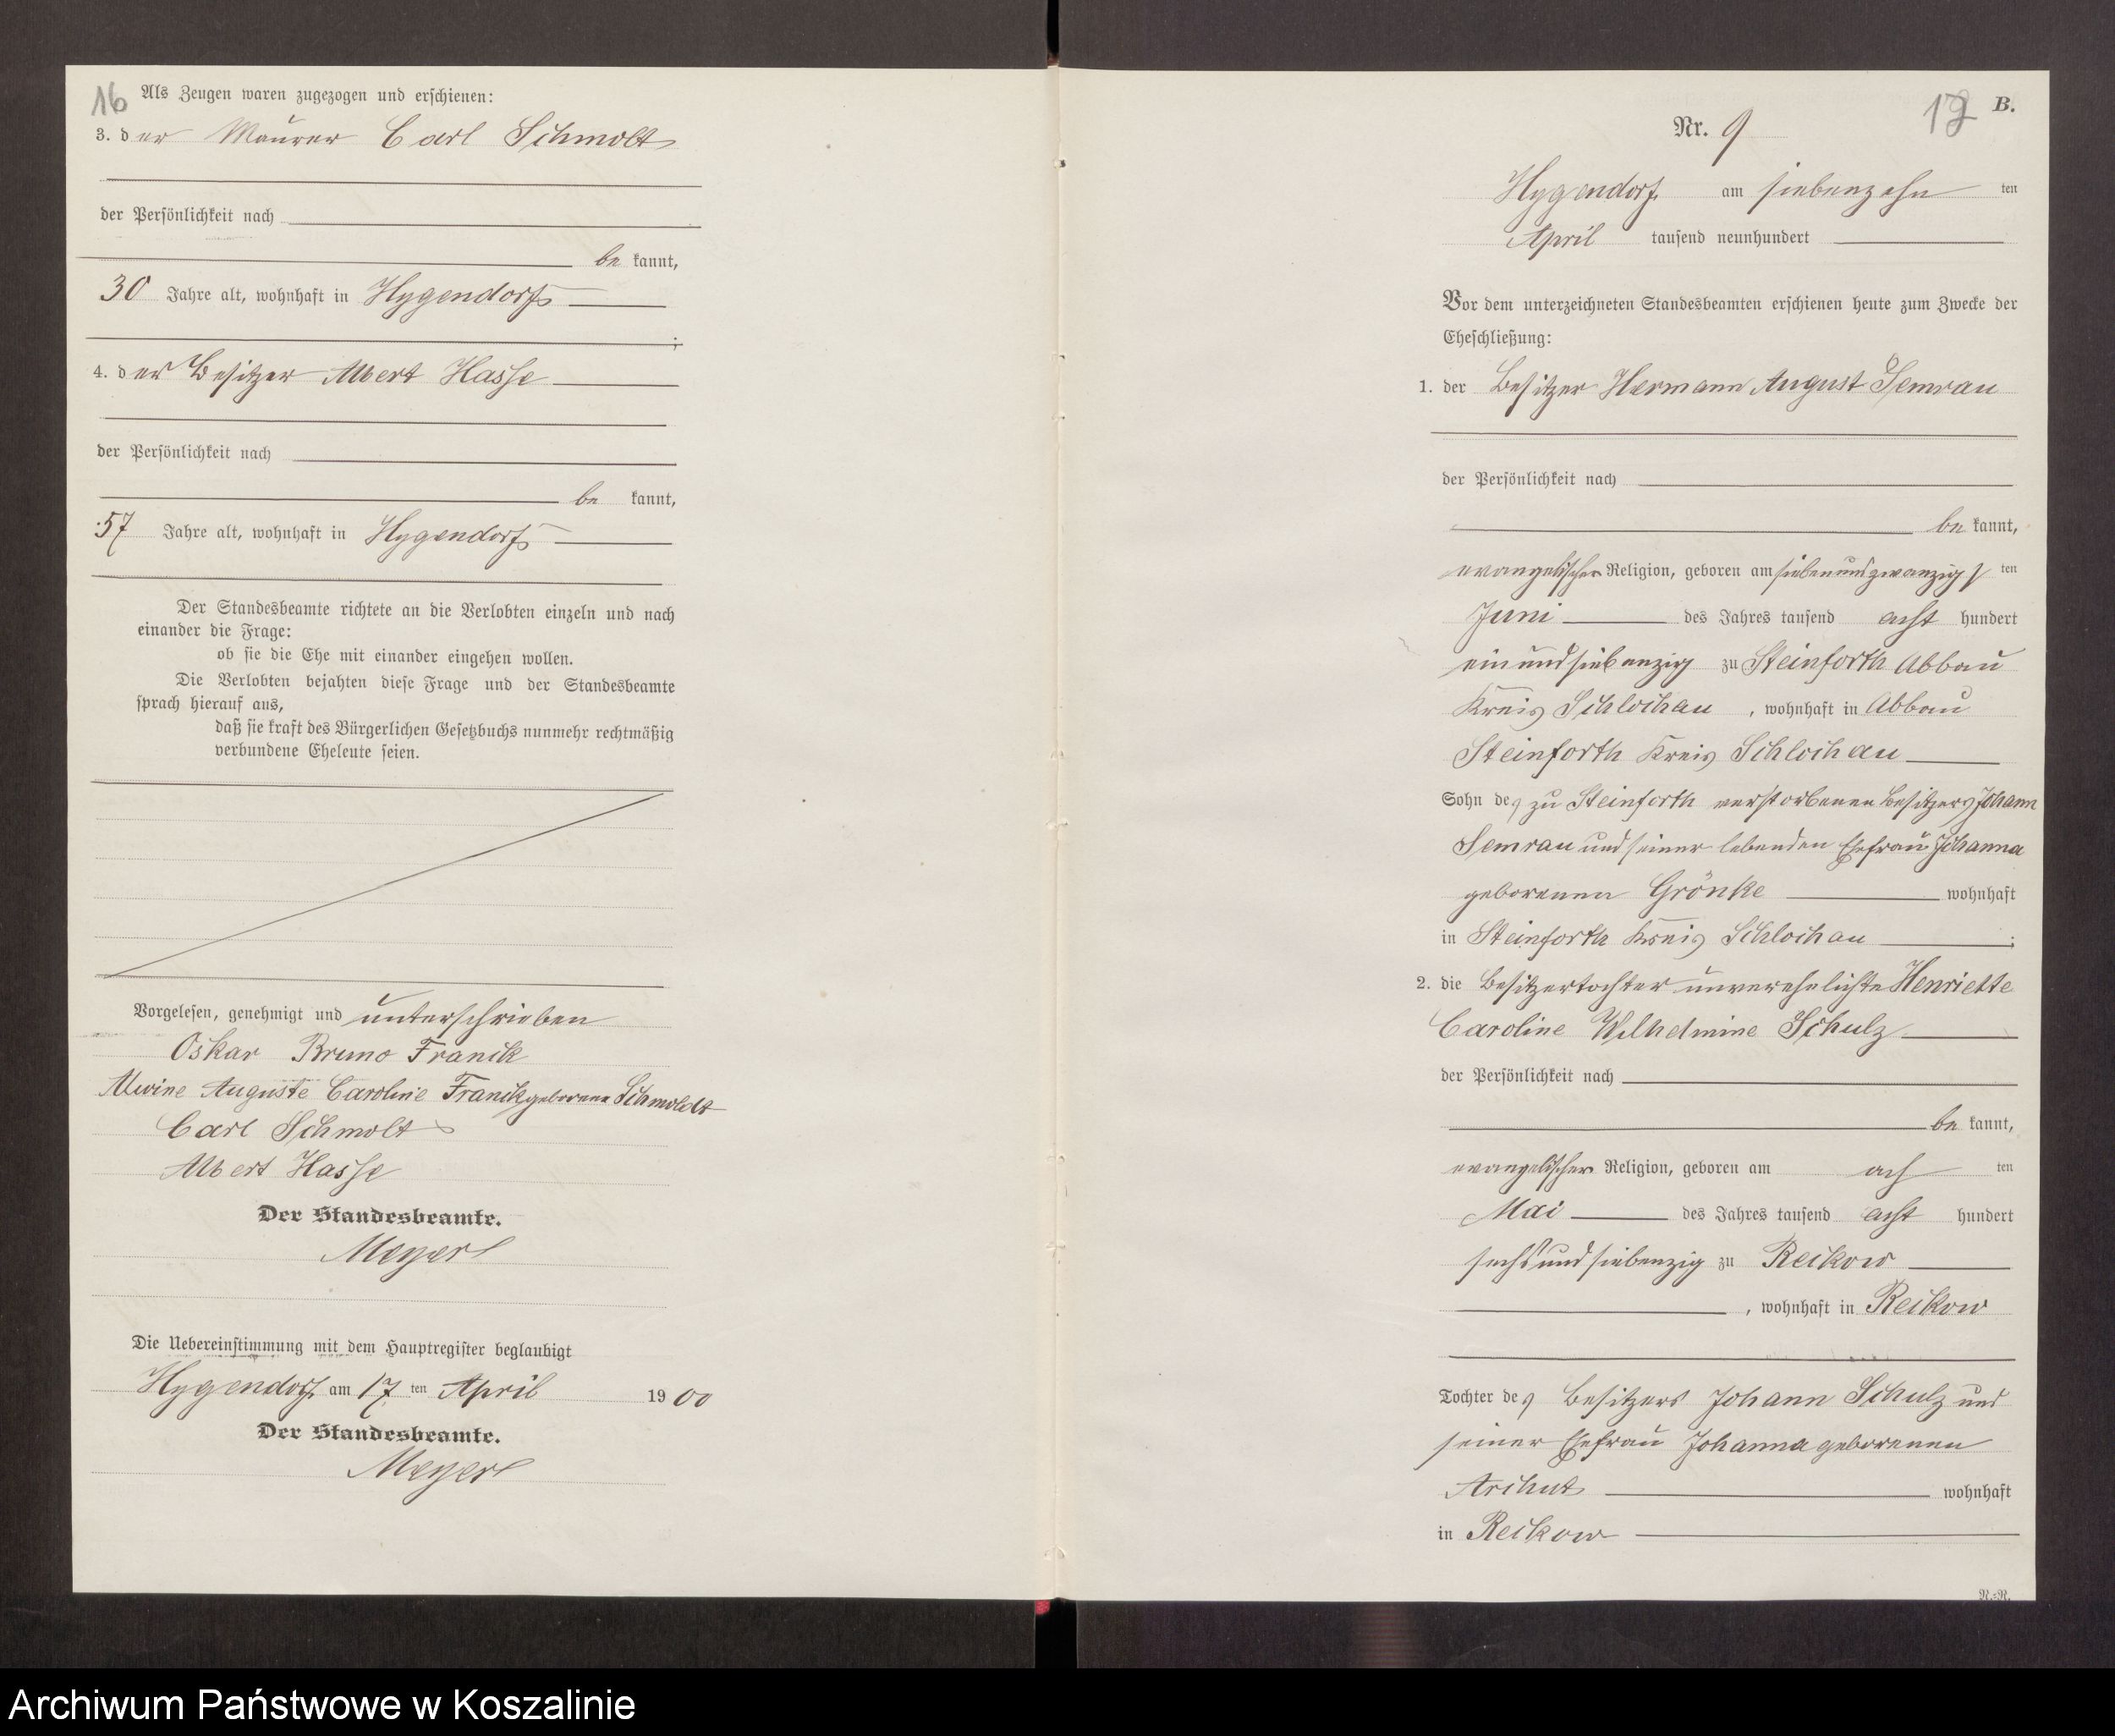 16
Als Zeugen waren zugezogen und erschienen:
3. der Maurer Carl Schmolt
der Persönlichkeit nach
be kannt,
30 Jahre alt, wohnhaft in Hygendorf
;
4. der Besitzer Albert Hasse
der Persönlichkeit nach
be kannt,
57 Jahre alt, wohnhaft in Hygendorf
Der Standesbeamte richtete an die Verlobten einzeln und nach
einander die Frage:
ob sie die Ehe mit einander eingehen wollen.
Die Verlobten bejahten diese Frage und der Standesbeamte
sprach hierauf aus,
daß sie kraft des Bürgerlichen Gesetzbuchs nunmehr rechtmäßig
verbundene Eheleute seien.
Vorgelesen, genehmigt und unterschrieben
Oskar Bruno Franik
Alwine Auguste Caroline Franik geborene Schmoldt
Carl Schmolt
Albert Hasse
Der Standesbeamte.
Meyer
Die Uebereinstimmung mit dem Hauptregister beglaubigt
Hygendorf am 17 ten April 1900
Der Standesbeamte.
Meyer
17
B.
Nr. 9
Hygendorf am siebenzehn ten
April tausend neunhundert
Vor dem unterzeichneten Standesbeamten erschienen heute zum Zwecke der
Eheschließung:
1. der Besitzer Hermann August Semrau
der Persönlichkeit nach
be kannt,
evangelischer Religion, geboren am siebenundzwanzigs ten
Juni des Jahres tausend acht hundert
einundsiebenzig zu Steinforth Abbau
Kreis Schlochau , wohnhaft in Abbau
Steinforth Kreis Schlochau
Sohn des zu Steinforth verstorbenen Besitzers Johann
Semrau und seiner lebenden Ehefrau Johanna
geborenen Grönke wohnhaft
in Steinforth Kreis Schlochau ;
2. die Besitzertochter unverehelichte Henriette
Caroline Wilhelmine Schulz
der Persönlichkeit nach
be kannt,
evangelischer Religion, geboren am ach ten
Mai des Jahres tausend acht hundert
sechsundsiebenzig zu Reikow
, wohnhaft in Reikow
Tochter des Besitzers Johann Schulz und
seiner Ehefrau Johanna geborenen
Archut wohnhaft
in Reikow
R.-R.
Archiwum Państwowe w Koszalinie